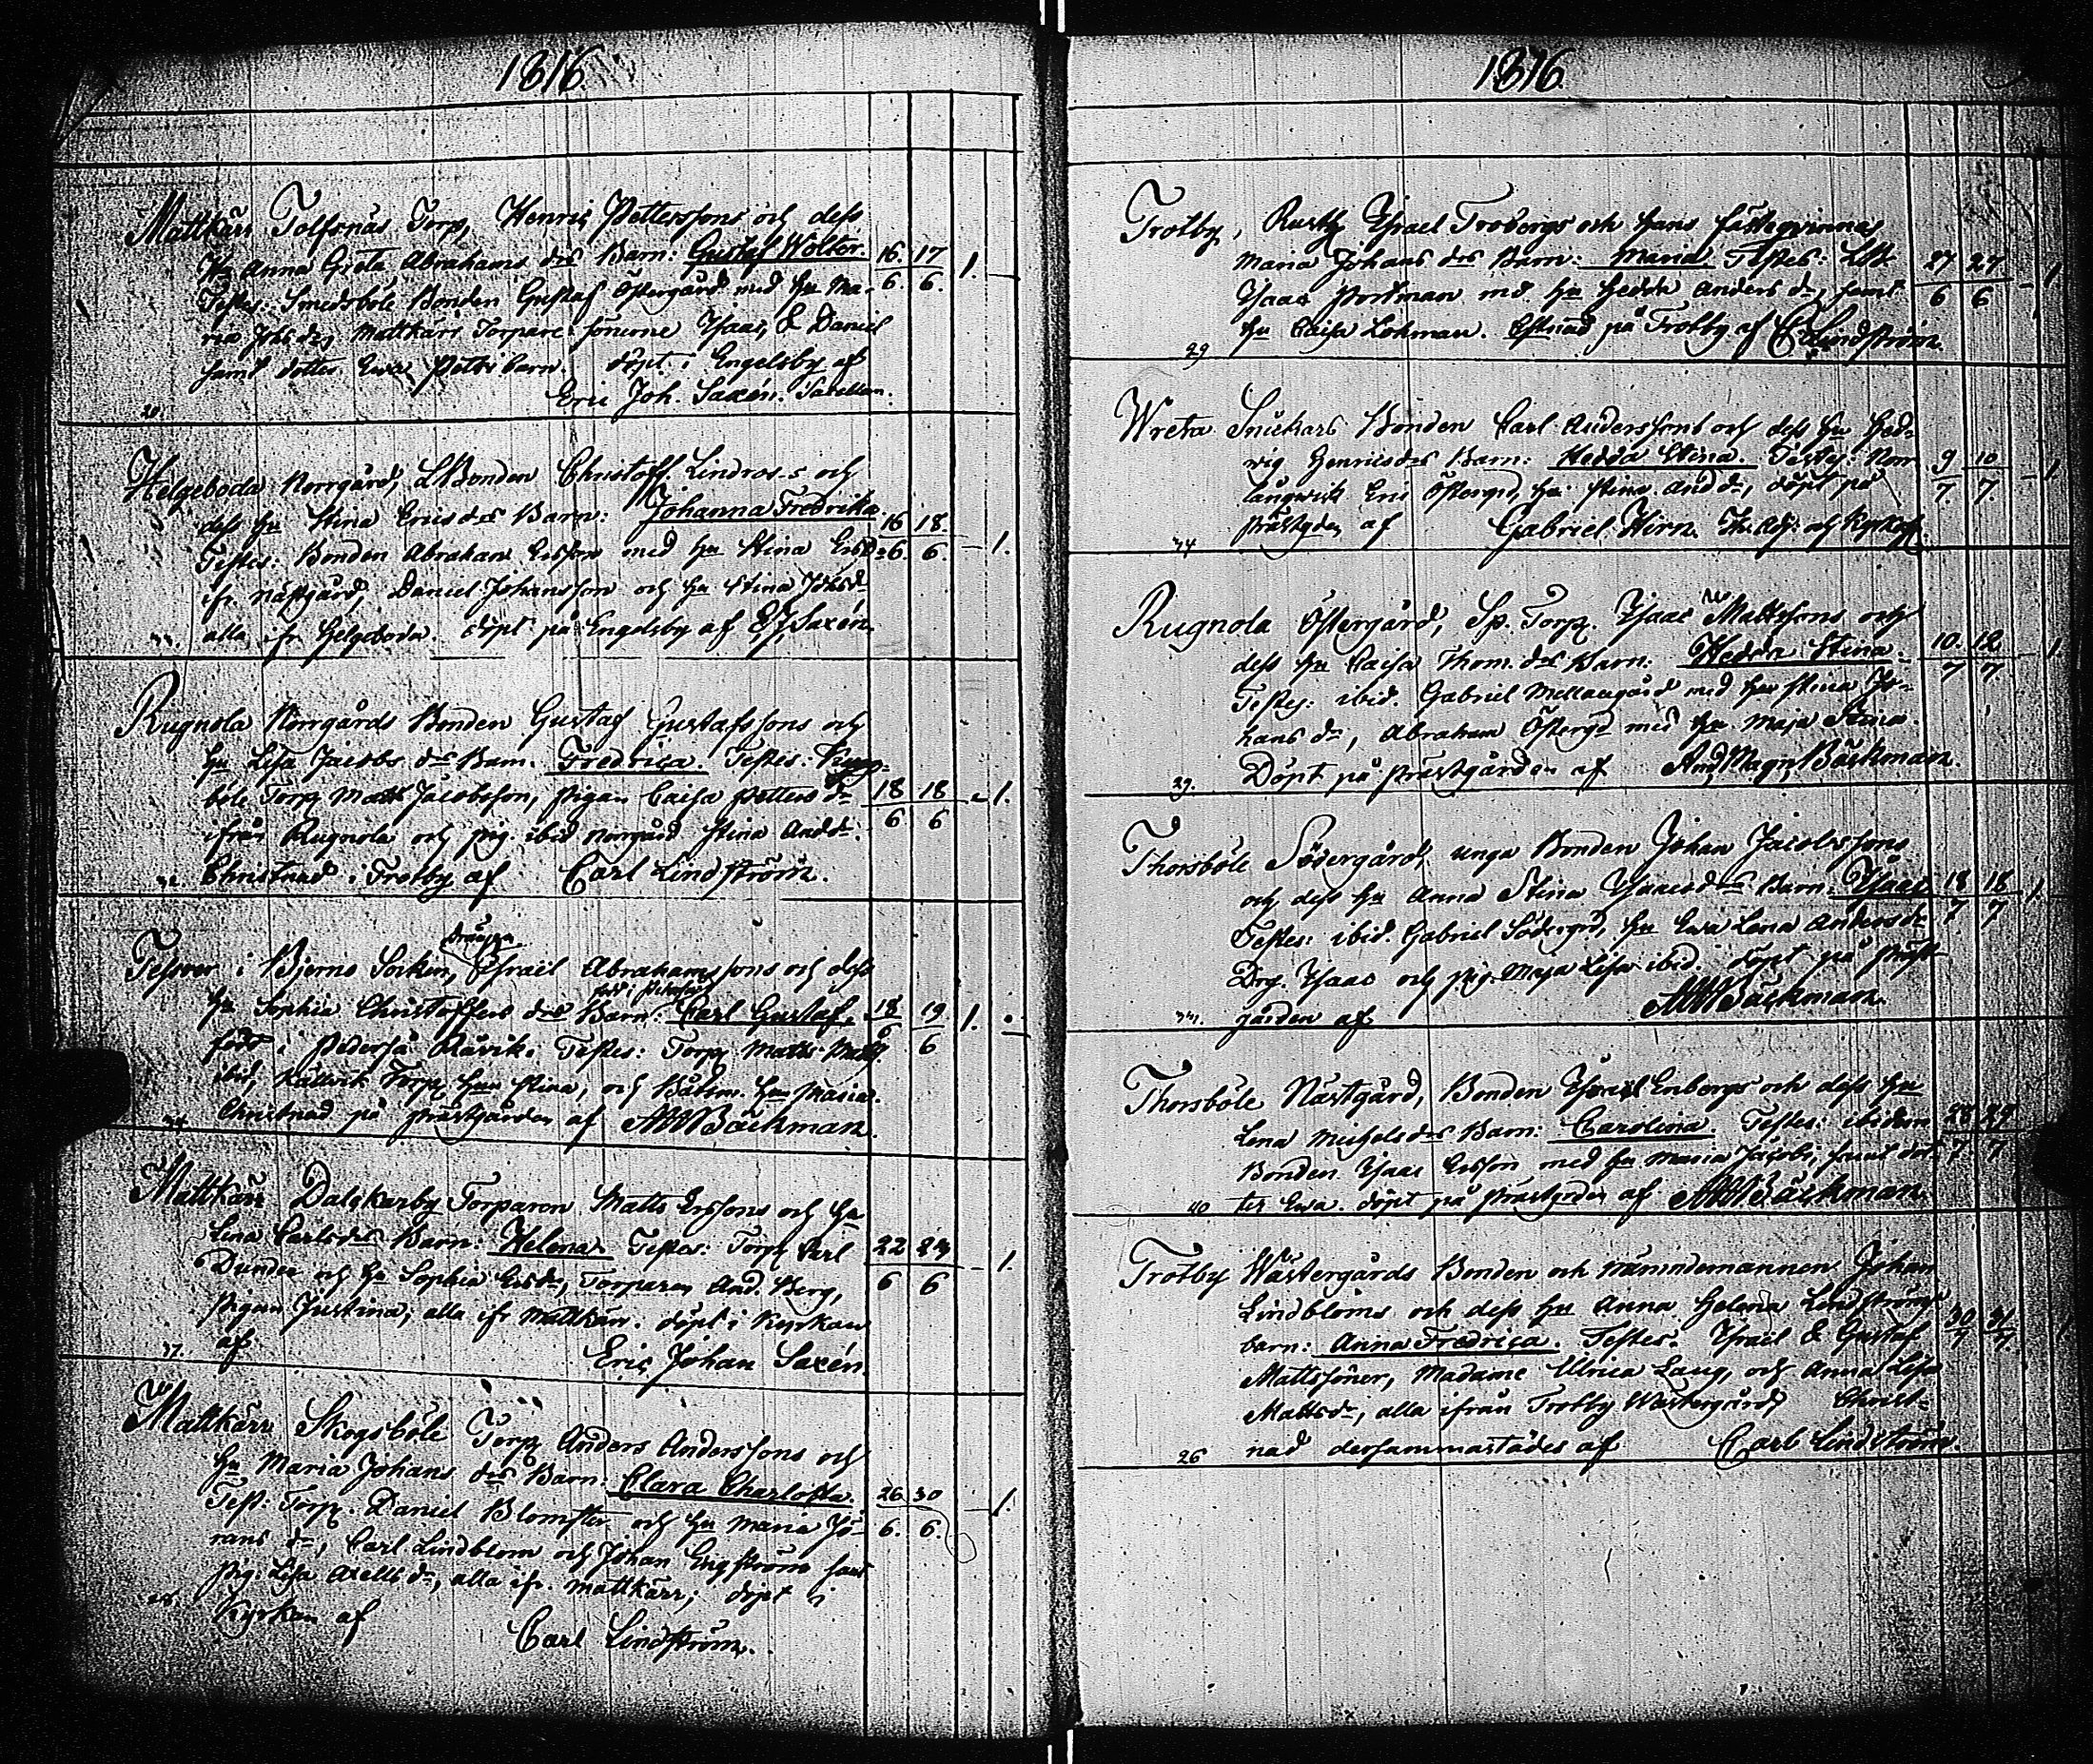 1816.
Mattkärr Tolfsnäs Torp, Henric Petterssons och dess
Hu Anna Greta Abrahams drs Barn: Gustaf Wolter. 16. 17 1. –
Testes: Smedsböle Bonden Gustaf Östergård med hu Ma- 6. 6.
ria Johs dr, Mattkärr Torpare sönerne Isaac & Daniel
samt dotter Ewa Petters barn. döpt i Engelsby af
20. Eric Joh. Saxén.
Helgeboda Norrgård, LBonden Christoff. Lindros-s och
dess hu Stina Ericsdrs Barn: Johanna Fredrika. 16 18. – 1.
Testes: Bonden Abraham Ersson med hu Stina Ersdr 6. 6.
ifr. Nästgård, Daniel Johansson och hu Stina Johsdr
alla ifr Helgeboda. döpt på Engelsby af EJSaxén
Rugnola Norrgårds Bonden Gustaf Gustafssons och
hu Lisa Jacobs drs Barn. Fredrica. Testes:
böle Torp Matts Jacobsson, pigan Caisa Petters dr 18 18 – 1.
ifrån Rugnola och pig. ibid Norrgård Stina Anddr. 6 6
32. Christnad i Trotby af Carl Lindström.
drängen
i Bjerno Socken, Israël Abrahamssons och dess
hu Sophia Christoffers drs Barn: Carl Gustaf. 18 19 1. –
född i Pedersjä Räwik. Testes: Torp Matts 6 6
ibid, Källwik Torp hu Stina, och Båtsm. hu Maria.
Christnad på prästgården af AMBäckman.
Mattkärr Dalckarby Torparen Matts Erssons och hu
Lina Carlsdrs Barn: Helena. Testes: Torp Carl 22 23 – 1.
Dunder och hu Sophia Ersdr, Torparen And. Berg, 6 6
pigan Justina, alla ifr Mattkärr. döpt i Kyrkan
37. af Eric Johan Saxén.
Mattkärr Skogsböle Torp Anders Anderssons och
hu Maria Johans drs Barn: Clara Charlotta. 26 30 – 1.
Test: Torp. Daniel Blomster och hu Maria Jö- 6. 6.
rans dr, Carl Lindblom och Johan Engström samt
pig. Lisa Axells dr, alla ifr. Mattkärr; döpt i
28. Kyrkan af Carl Lindström.
1816.
Trotby, Rusth Israel Trobergs och hans fästeqvinnas
Maria Johans drs Barn: Maria Testes: 27 27 – 1
Isaac Portman md. hu Hedda Anders dr, samt 6 6
hu Caisa Lohman. Christnad på Trotby af CLindström.
29
Wreta Snickars Bonden Carl Anderssons och dess hu Hed-
wig Henricsdrs Barn: Hedda Stina. Testes: Norr 9 10 – 1
långwik Eric Östergrd, hu Stina And dr, döpt på 7. 7.
34 prästgden af Gabriel Hirn.
Rugnola Östergård, Sp. Torp. Isaac Mattssons och
dess hu Caisa Thom. drs Barn: Hedda Stina. 10. 12 – 1.
Testes: ibid. Gabriel Mellangård med hu Stina Jo- 7 7
hans dr, Abraham Östergd med hu Maja Stina.
29. Döpt på prästgården af And Magn Bäckman.
Thorsböle Södergård, unga Bonden Johan Jacobssons
och dess hu Anna Stina Isaacsdrs Barn: Isaac 18 18 1.
Testes: ibid. Gabriel Södergrd, hu Ewa Lena Anders dr 7 7
Drg. Isaac och pig. Maja Lisa ibid. döpt på präst-
gården af AMBäckman.
Thorsböle Nästgård, Bonden Israël Enbergs och dess hu
Lena Michelsdrs Barn: Carolina. Testes: ibidem 28 29
Bonden Isaac Ersson med hu Maria Jacobs, samt dot- 7 7
40 ter Ewa. döpt på prästgrden af AMBäckman.
Trotby Wästergårds Bonden och nämndemannen Johan
Lindbloms och dess hu Anna Helena Lindströms
barn: Anna Fredrica. Testes. Israel & Gustaf 30 31 1.
Mattssöner, Madame Ulrica Laug, och Anna Lisa 7 7.
Mattsdr, alla ifrån Trotby Wästergård, Christ-
26 nad dersammastädes af Carl Lindström.